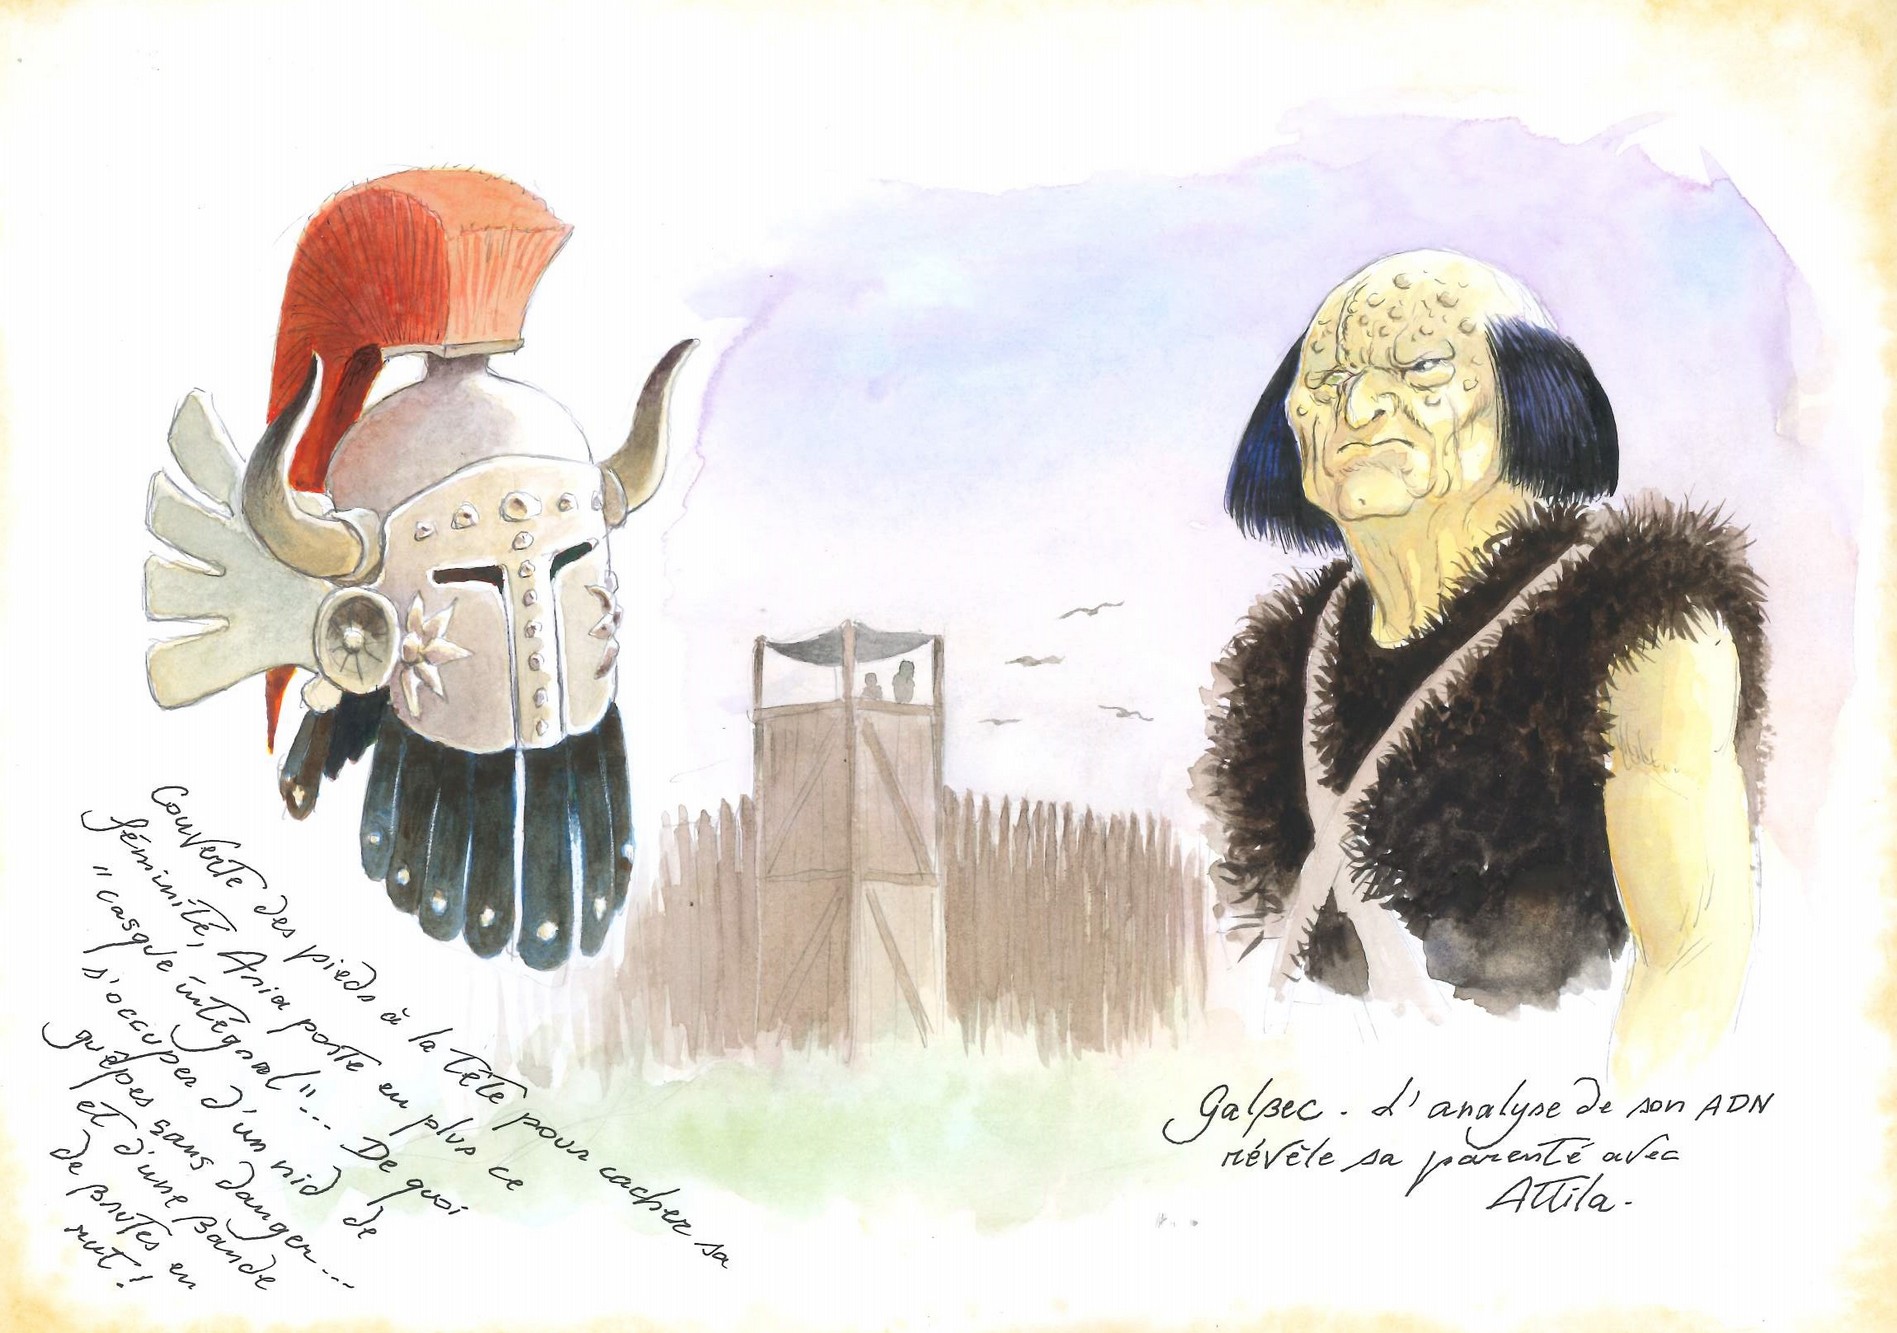 Couverte des pieds à la tête pour cacher sa
féminité, Aria porte en plus ce
"casque intégral"... De quoi
s'occuper d'un nid de
guêpes sans danger...
et d'une bande
de brutes en
rut!
Galbec. L'analyse de son ADN
révèle sa parenté avec
Attila.